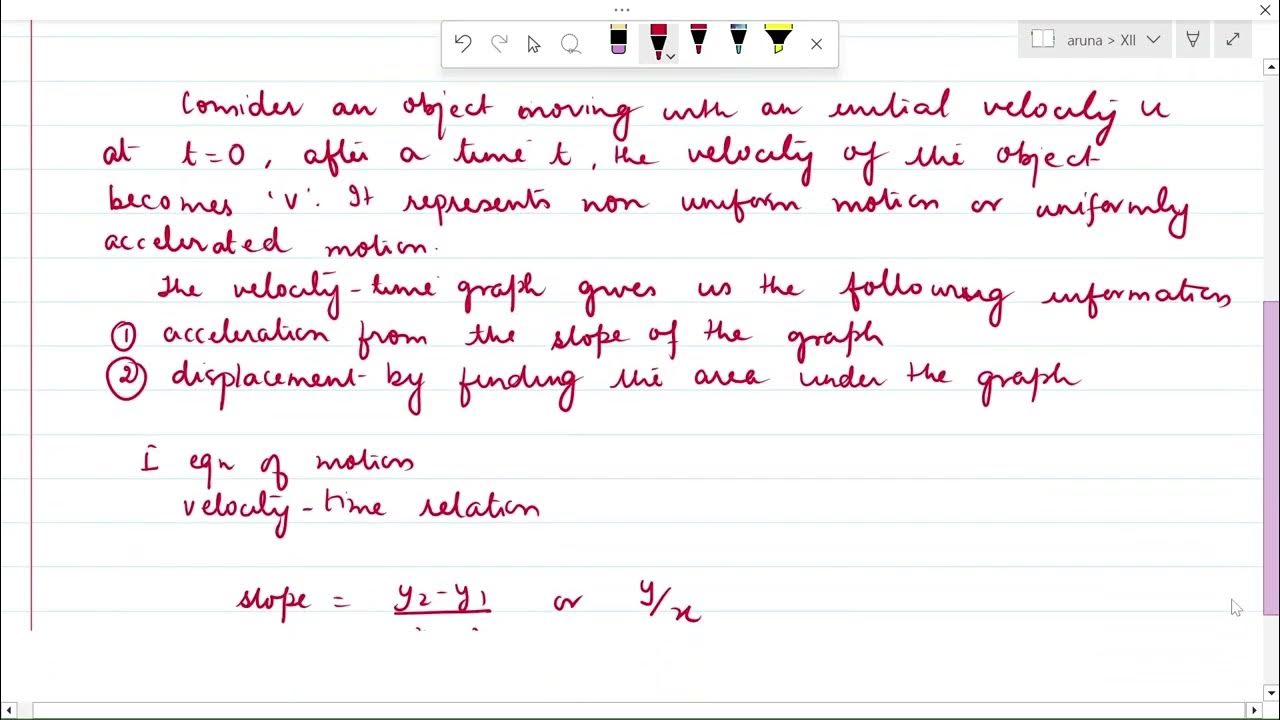 aruna > XII
Consider an object moving with an initial velocity u
at t=0, after a time t, the velocity of the object
becomes 'v'. It represents non uniform motion or uniformly
accelerated motion.
The velocity-time graph gives us the following information
① acceleration from the slope of the graph
② displacement by finding the area under the graph
I eqn of motion
velocity-time relation
slope = y₂-y₁ or y/x